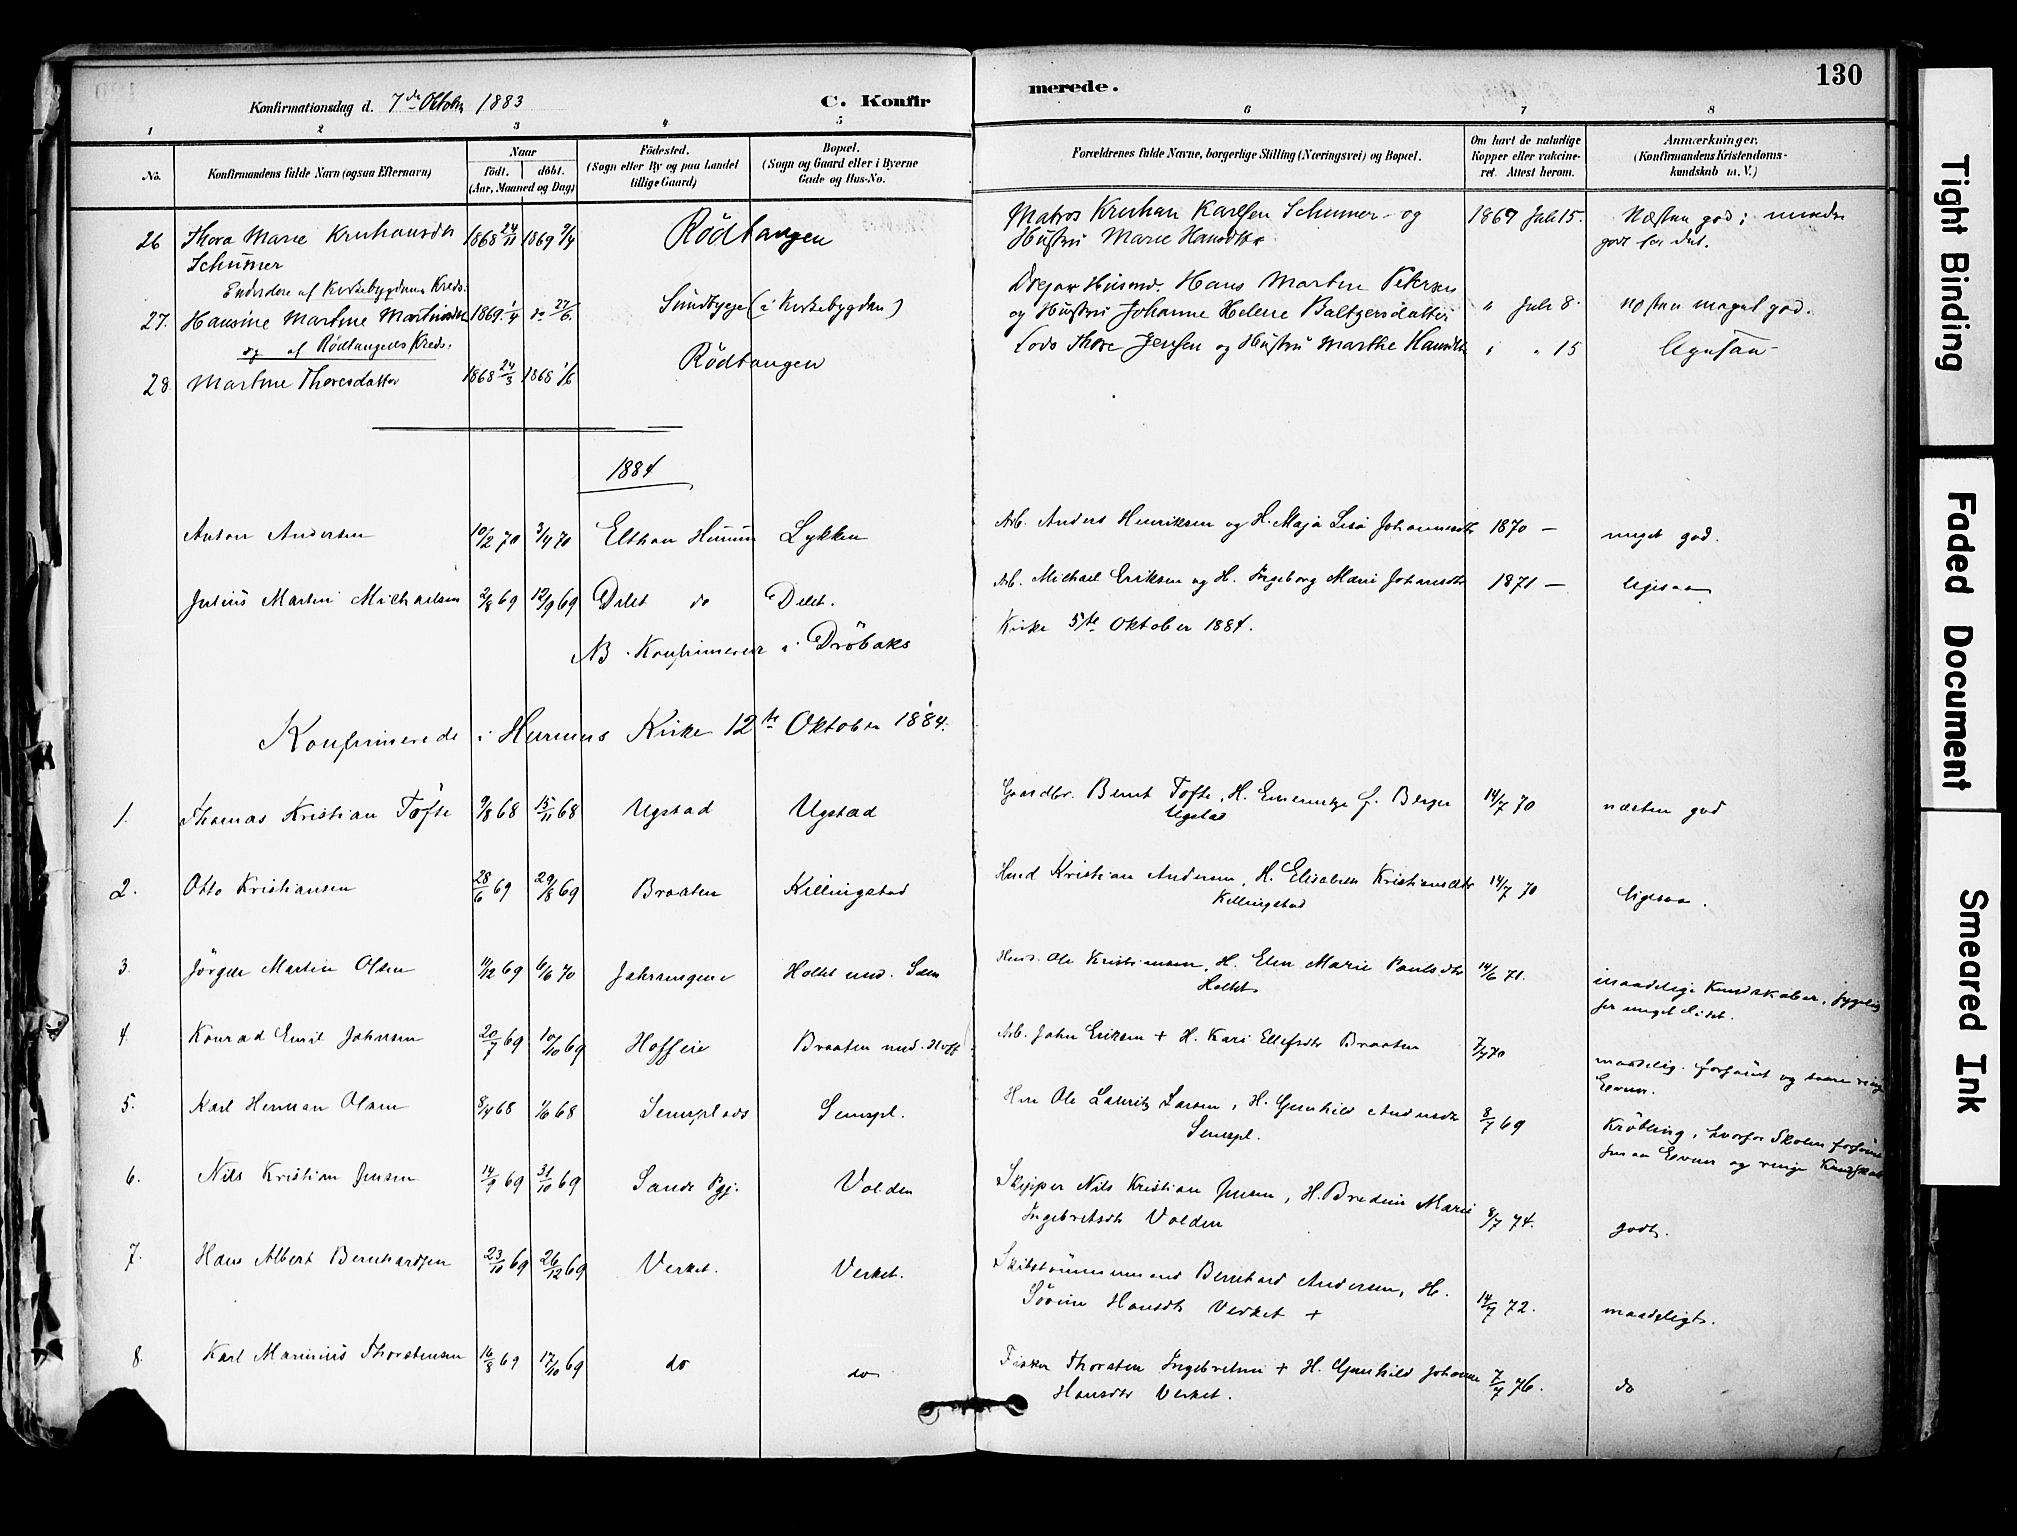 130
Konfirmationsdag d. 7de Oktober 1883
C. Konfir
merede.
1 2 3 4 5 6 7 8
No.
Konfirmandens fulde Navn (ogsaa Efternavn)
Naar
födt. döbt.
(Aar, Maaned og Dag)
Födested.
(Sogn eller By og paa Landet
tillige Gaard)
Bopæl.
(Sogn og Gaard eller i Byerne
Gade og Hus-No.
Forældrenes fulde Navne, borgerlige Stilling (Næringsvei) og Bopæl.
Om havt de naturlige
Kopper eller vakcine-
ret. Attest herom.
Anmærkninger.
(Konfirmandens Kristendoms-
kundskab m. V.)
26 Thora Marie Kristiansdtr 1868 24/11 1869 9/4 Rödtangen Matros Kristian Karlsen Schumer og 1869 Juli 15. Næsten god; mindre
Schumer Hustru Marie Hansdtr godt for det.
Endvidere af Kirkebygdens Kreds:
27. Hansine Martine Martinsdtr 1869 1/4 do 27/6 Sundbye (i Kirkebygden) Husmd. Hans Martin Petersen
og Hustru Johanne Helene Baltzersdatter " Juli 8. Næsten meget god.
og af Rödtangens Kreds:
28 Martine Thoresdatter 1868 24/3 1868 1/6 Rödtangen Lods Thore Jensen og Hustru Marthe Hansdtr " " 15 Ligesaa
1884
Anton Andersen 10/2 70 3/4 70 Elthon Hurum Lykken Arb. Anders Henriksen og H. Maja Lisa Johannesdtr 1870 — meget god.
Julius Martin Michaelsen 2/8 69 12/9 69 Delet do Delet. Arb. Michael Eriksen og H. Ingeborg Marie Johansdtr 1871 — ligesaa
NB. Konfirmerede i Dröbaks Kirke 5te Oktober 1884.
Konfirmerede i Hurums Kirke 12te Oktober 1884.
1. Thomas Kristian Tofte 9/8 68 15/11 68 Ugstad Ugstad Gaardbr. Bernt Tofte, H. Emerentze f. Berger 14/7 70 næsten god
Ugstad
2. Otto Kristiansen 28/6 69 29/8 69 Braaten Killingstad Husmd Kristian Andersen, H. Elisabeth Kristiansdtr 14/7 70 ligesaa.
Killingstad
3. Jörgen Martin Olsen 11/12 69 6/6 70 Holtet und. Sem Husm. Ole Kristiansen, H. Elen Marie Paulsdtr 14/6 71. maadelige Kundskaber,
Holtet for meget
4. Konrad Emil Johnsen 20/7 69 10/10 69 Hoffeie Braaten und. Hoff Arb. John Eriksen + H. Kari Ellefsdtr Braaten 7/7 70 maadelig. forsömt og
Evner.
5. Karl Herman Olsen 8/4 68 1/6 68 Semsplads Semspl. Hm Ole Lauritz Larsen, H. Gunhild Andersdtr 8/7 69 Kröbling, hvorfor Skolen forsömt
Semspl. smaa Evner og ringe Kundskab
6. Nils Kristian Jensen 14/9 69 31/10 69 Sande Pgj. Volden Skipper Nils Kristian Jensen, H. Bredine Marie
Ingebretsdtr Volden 8/7 74. godt.
7. Hans Albert Bernhardsen 23/10 69 26/12 69 Verket. Verket. Skibstömmermand Bernhard Andersen, H.
Sörine Hansdtr Verket + 14/7 72. maadeligt.
8. Karl Marinius Thorstensen 16/8 69 17/10 69 do do Fisker Thorsten Ingebretsen + H. Gunhild Johanne 7/7 76. do
Hansdtr Verket.
Tight Binding
Faded Document
Smeared Ink